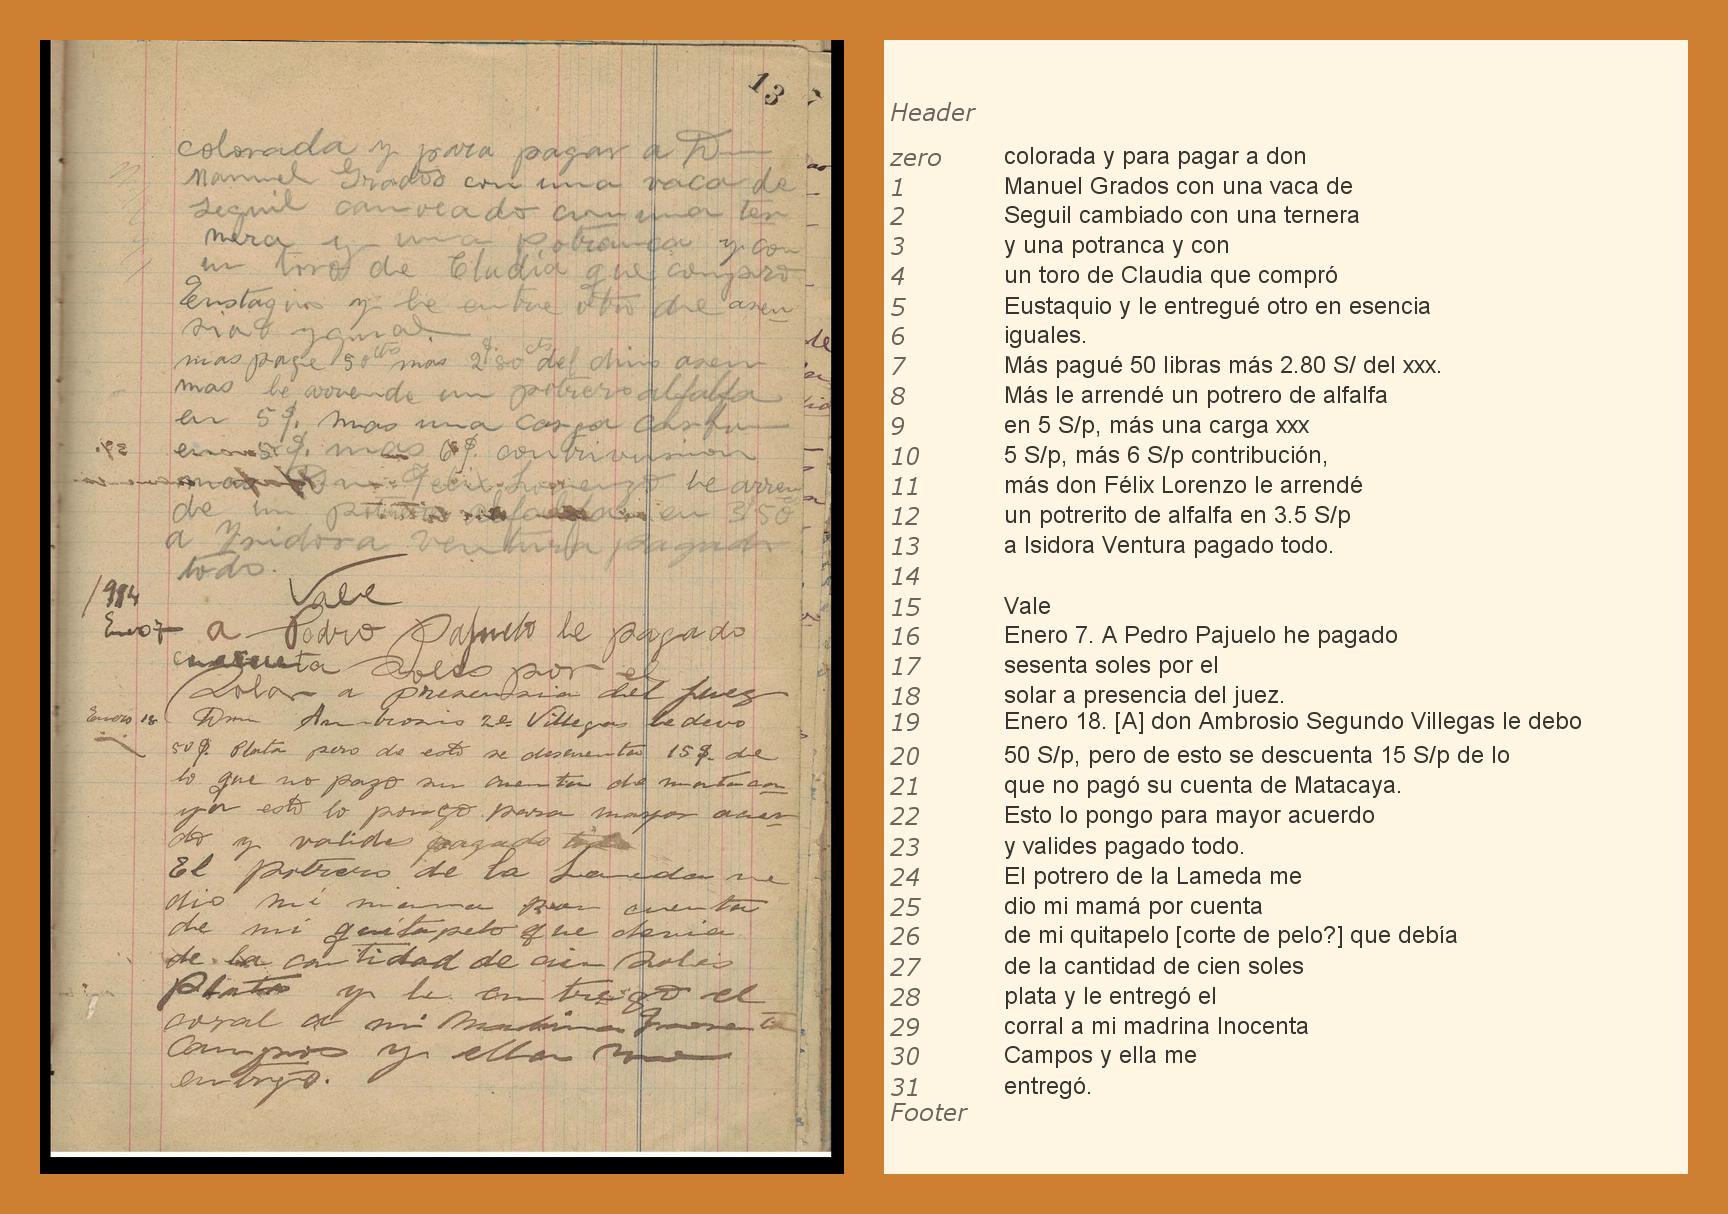 13
colorada y para pagar a Dn
Manuel Grados con una vaca de
Seguil canveado con una ter
nera y una potranca y con
un toro de Cludia que compro
Eustaquio y le entre otro de asen
sia ygual
mas page 50 mas 2 80 del dino asen
mas le arrende un potrero alfalfa
en 5$. mas una carga
5$. mas 6$. contrivusion
mas Dn Felix Lorenzo le arren
de un alfalfa en 3/50
a Ysidora Ventura pagado
todo.
Vale
Enero 7 a Pedro Pajuelo he pagado
soles por el
Solar a presensia del juez
Enero 18 Don Ambrosio 2º Villegas le devo
50$. Plata pero de esto se descuenta 15$. de
lo que no pago su cuenta de mataca
ya esto lo pongo para mayor acuer
do y valides pagado
El potrero de la Lameda me
dio mi mama por cuenta
de mi quitapelo que devia
de la cantidad de cien soles
Plata y le entrego el
coral a mi madrina Ynosenta
Campos y ella me
entrego.
Header
zero colorada y para pagar a don
1 Manuel Grados con una vaca de
2 Seguil cambiado con una ternera
3 y una potranca y con
4 un toro de Claudia que compró
5 Eustaquio y le entregué otro en esencia
6 iguales.
7 Más pagué 50 libras más 2.80 S/ del xxx.
8 Más le arrendé un potrero de alfalfa
9 en 5 S/p, más una carga xxx
10 5 S/p, más 6 S/p contribución,
11 más don Félix Lorenzo le arrendé
12 un potrerito de alfalfa en 3.5 S/p
13 a Isidora Ventura pagado todo.
14
15 Vale
16 Enero 7. A Pedro Pajuelo he pagado
17 sesenta soles por el
18 solar a presencia del juez.
19 Enero 18. [A] don Ambrosio Segundo Villegas le debo
20 50 S/p, pero de esto se descuenta 15 S/p de lo
21 que no pagó su cuenta de Matacaya.
22 Esto lo pongo para mayor acuerdo
23 y valides pagado todo.
24 El potrero de la Lameda me
25 dio mi mamá por cuenta
26 de mi quitapelo [corte de pelo?] que debía
27 de la cantidad de cien soles
28 plata y le entregó el
29 corral a mi madrina Inocenta
30 Campos y ella me
31 entregó.
Footer